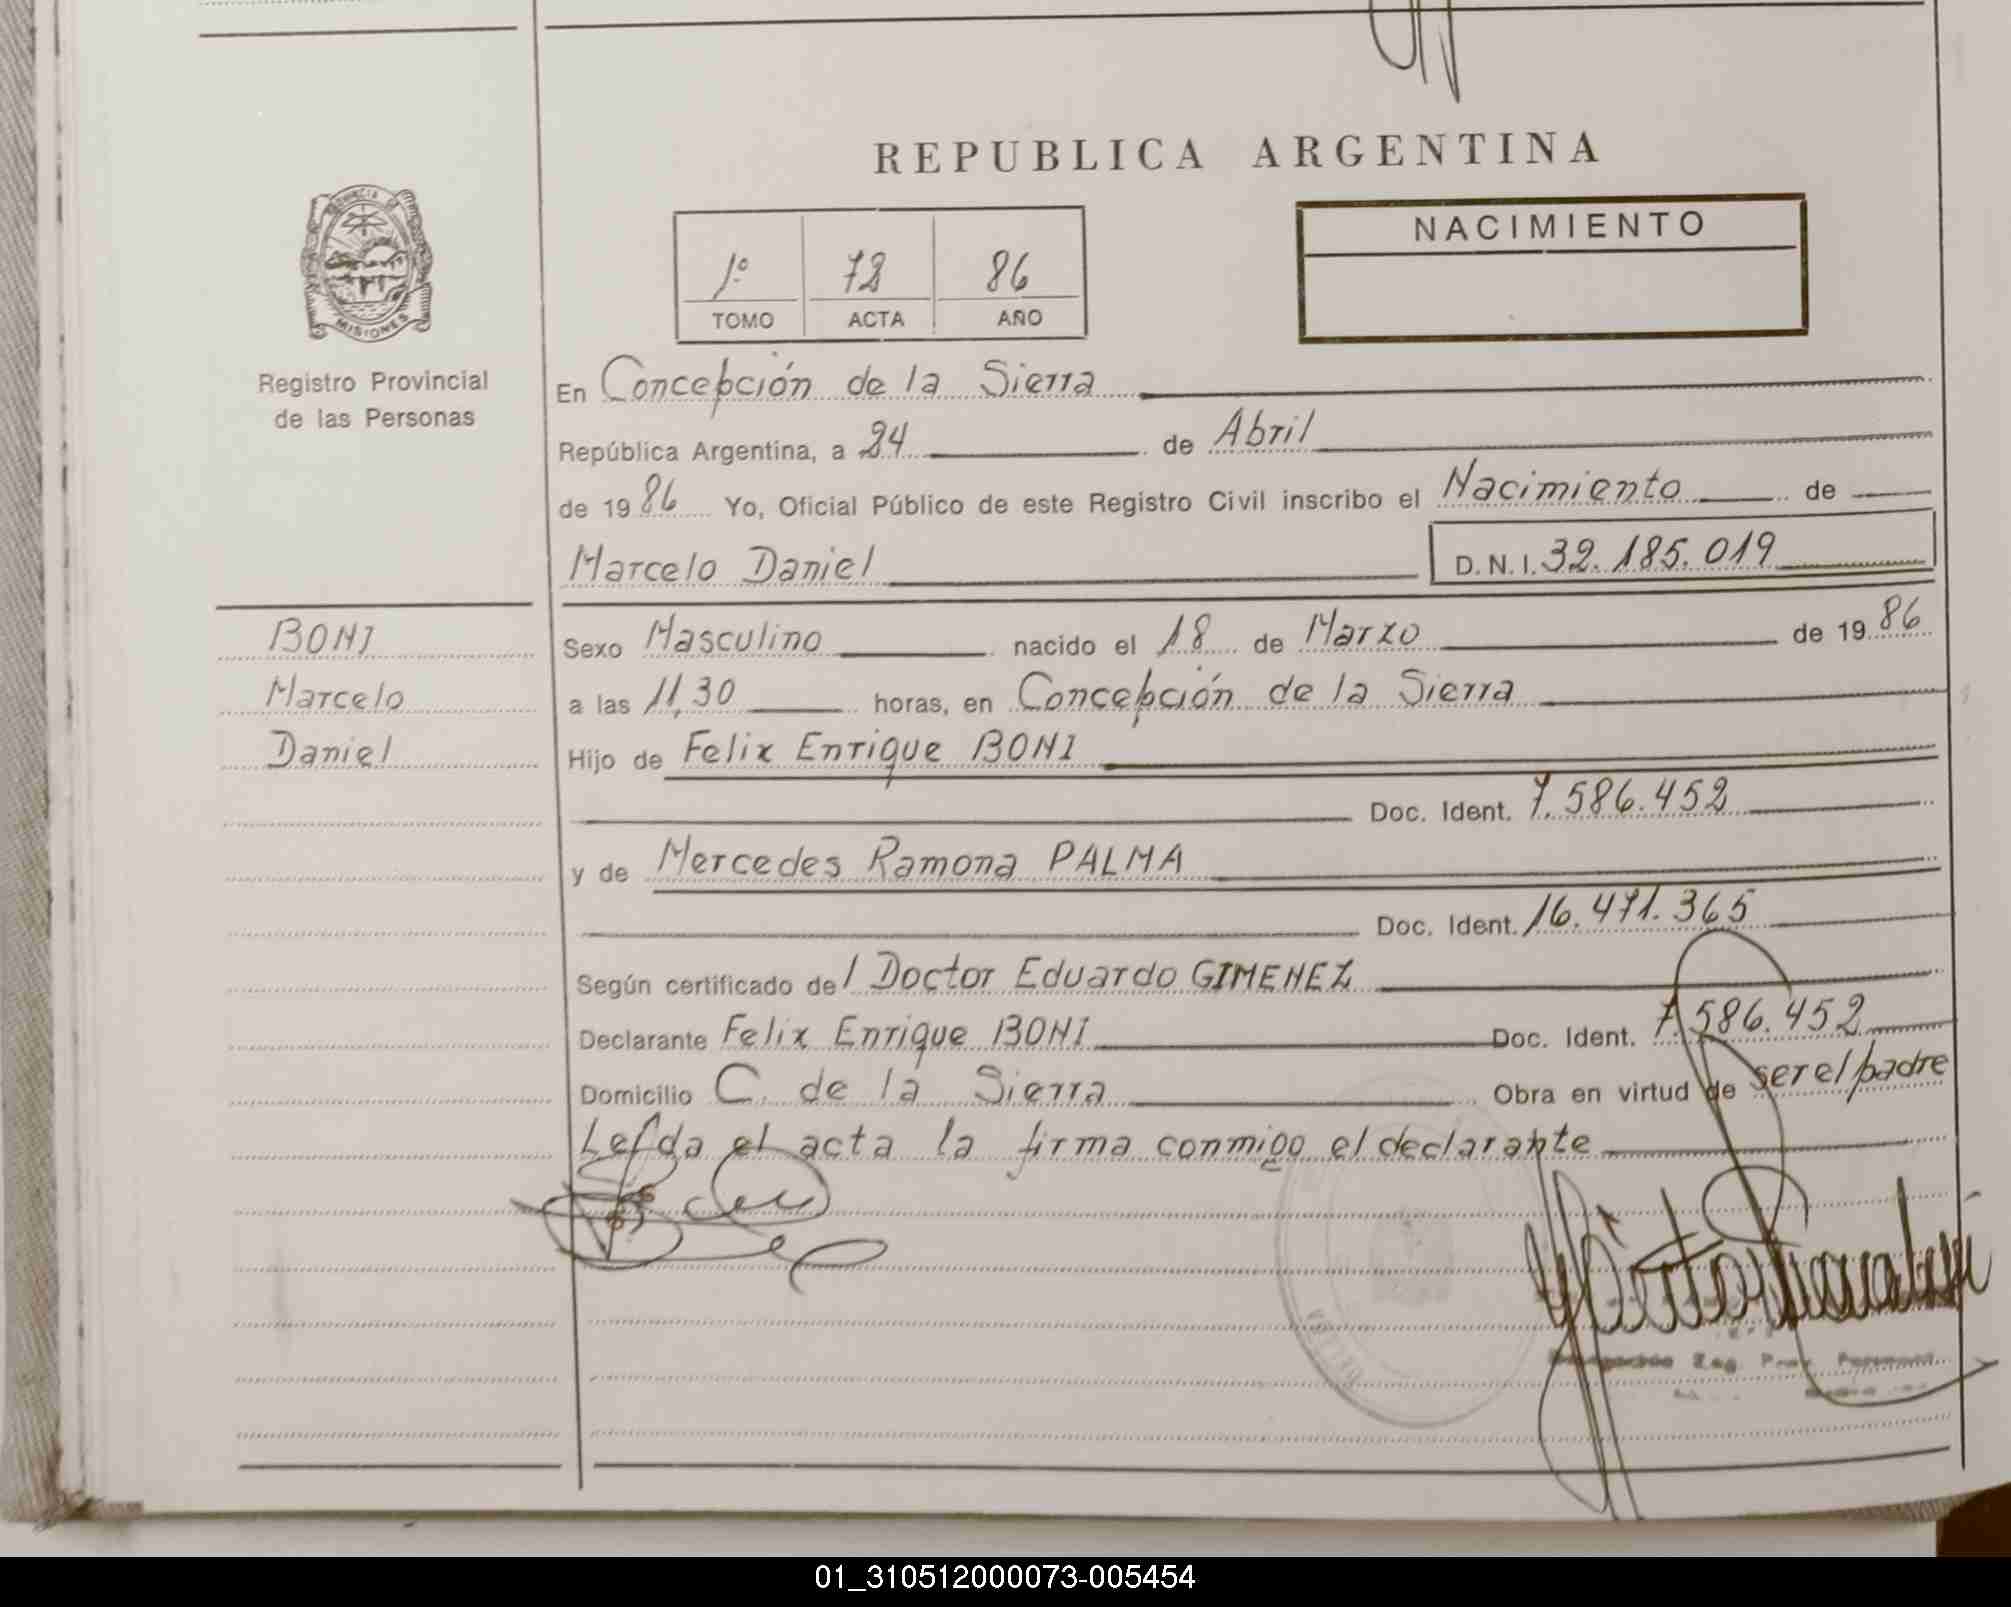 REPUBLICA ARGENTINA
NACIMIENTO
1º 72 86
TOMO ACTA AÑO
MISIONES
Registro Provincial
de las Personas
En Concepción de la Sierra
República Argentina, a 24 de Abril
de 1986 Yo, Oficial Público de este Registro Civil inscribo el Nacimiento de
Marcelo Daniel D.N.I. 32.185.019
BONI
Marcelo
Daniel
Sexo Masculino nacido el 18 de Marzo de 1986
a las 11,30 horas, en Concepción de la Sierra
Hijo de Felix Enrique BONI
Doc. Ident. 7.586.452
y de Mercedes Ramona PALMA
Doc. Ident. 16.471.365
Según certificado del Doctor Eduardo GIMENEZ
Declarante Felix Enrique BONI Doc. Ident. 7.586.452
Domicilio C. de la Sierra Obra en virtud de ser el padre
Leída el acta la firma conmigo el declarante
01_310512000073-005454